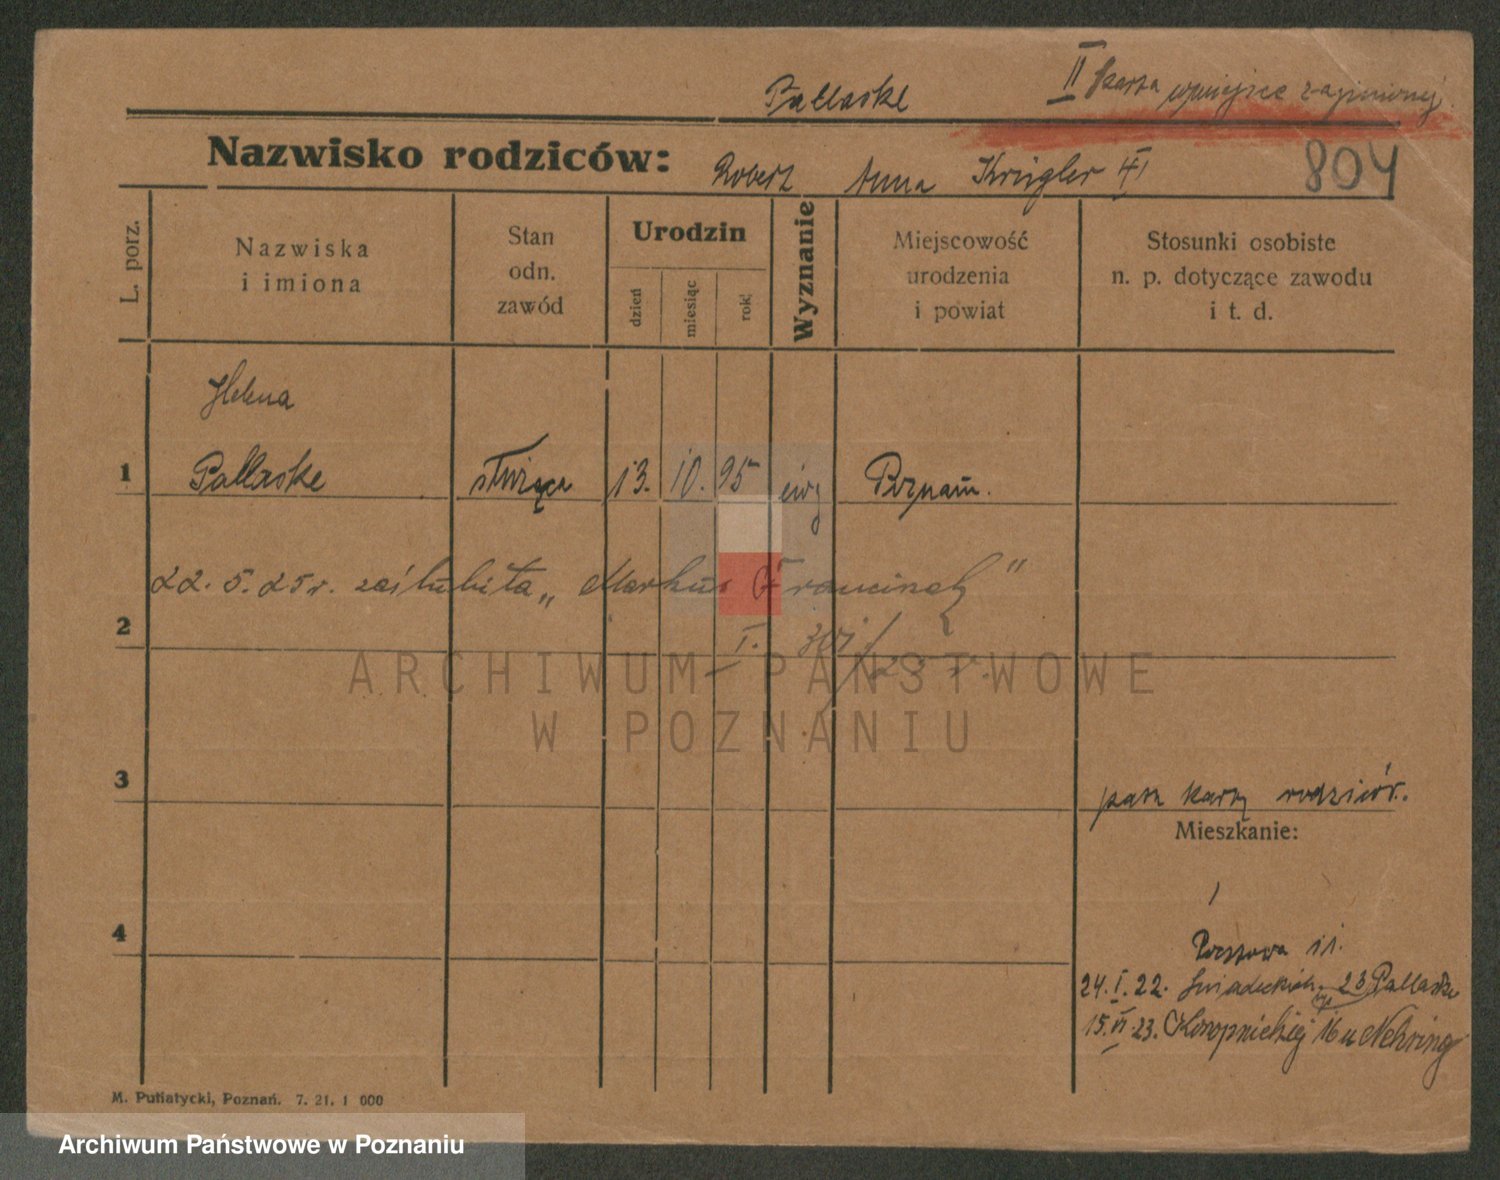 Pallaske II Karta wmiejsce zaginionej
Nazwisko rodziców: Robert Anna Krügler
804
L. porz.
Nazwiska
i imiona
Stan
odn.
zawód
Urodzin
dzień
miesiąc
rok
Wyznanie
Miejscowość
urodzenia
i powiat
Stosunki osobiste
n. p. dotyczące zawodu
i t. d.
Helena
1 Pallaske służąca 13. 10. 95 ewg Poznań.
22. 5. 25 r. zaślubiła „Markus Franciszek"
2
ARCHIWUM PAŃSTWOWE
W POZNANIU
3
patrz kartę rodziców.
Mieszkanie:
4
11.
24. I. 22. Śniadeckich 23 Pallaske
15. VI. 23. Konopnickiej 16 u Nehring
M. Putiatycki, Poznań. 7. 21. 1 000
Archiwum Państwowe w Poznaniu